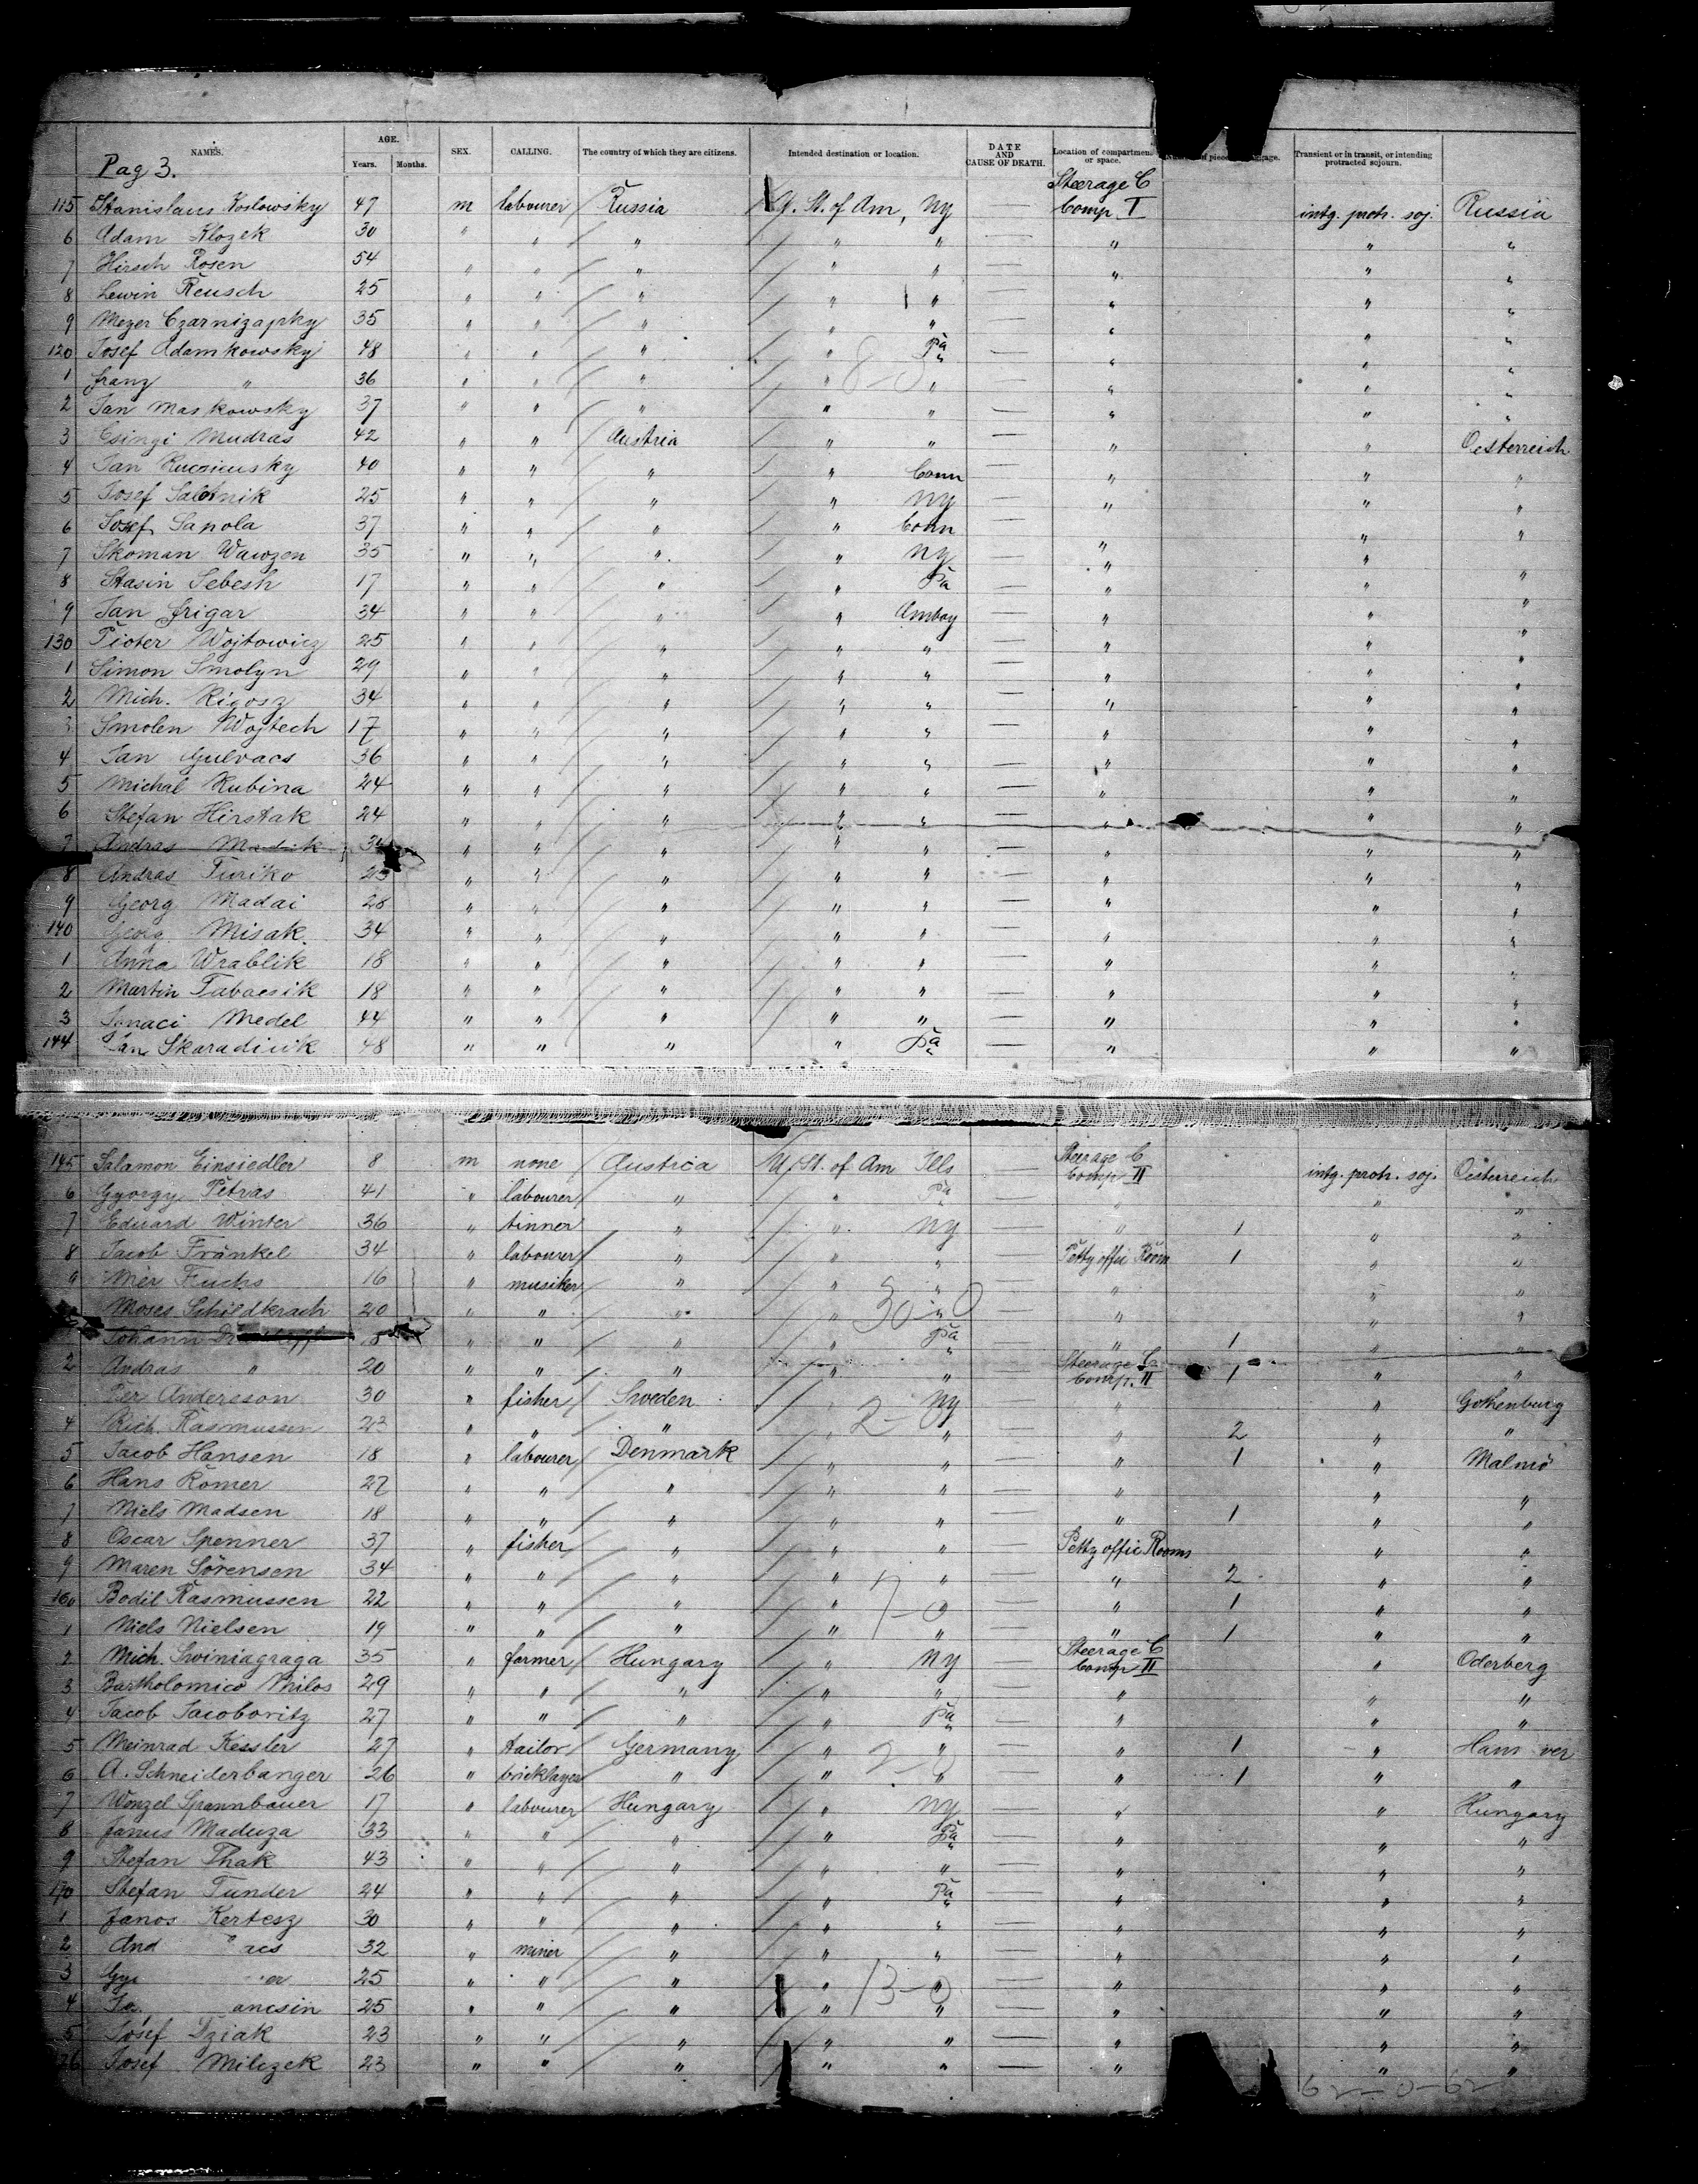 NAMES. AGE. Years. Months. SEX. CALLING. The country of which they are citizens. Intended destination or location. DATE AND CAUSE OF DEATH. Location of compartment or space. Transient or in transit, or intending protracted sojourn.
Pag 3.
Steerage C
115 Stanislaus Koslowsky 47 m labourer Russia U. St. of Am, NY — Comp. I intg. protr. soj. Russia
6 Adam Klozek 30 " " " " " — " " "
7 Hirsch Rosen 54 " " " " " — " " "
8 Lewin Reusch 25 " " " " " — " " "
9 Meyer 35 " " " " " — " " "
120 Josef Adamkowsky 48 " " " " Pa — " " "
1 Franz " 36 " " " " " — " " "
2 Jan Maskowsky 37 " " " " " — " " "
3 Mudras 42 " " Austria " " — " " Oesterreich
4 Jan 40 " " " " Conn — " " "
5 Josef 25 " " " " NY — " " "
6 Josef Sapola 37 " " " " Conn — " " "
7 Skoman Wawzen 35 " " " " NY — " " "
8 Stasin Sebesh 17 " " " " Pa — " " "
9 Jan Grigar 34 " " " " Amboy — " " "
130 Pioter Wojtowicz 25 " " " " " — " " "
1 Simon Smolyn 29 " " " " " — " " "
2 Mich. Rigosz 34 " " " " " — " " "
3 Smolen Wojtech 17 " " " " " — " " "
4 Jan Gulvacs 36 " " " " " — " " "
5 Michal Kubina 24 " " " " " — " " "
6 Stefan Hirstak 24 " " " " " — " " "
7 Andras " " " " " — " " "
8 Andras Turiko 23 " " " " " — " " "
9 Georg Madai 28 " " " " " — " " "
140 Georg Misak 34 " " " " " — " " "
1 Anna Wrablik 18 " " " " " — " " "
2 Martin Tabacsik 18 " " " " " — " " "
3 Ignaci Medel 44 " " " " " — " " "
144 Jan 48 " " " " Pa — " " "
145 Salamon Einsiedler 8 m none Austria U. St. of Am Ills — Steerage C Comp. II intg. protr. soj. Oesterreich
6 Gyorgy Petras 41 " labourer " " Pa — " " "
7 Eduard Winter 36 " tinner " " NY — " 1 " "
8 Jacob Fränkel 34 " labourer " " " — Petty offic Room 1 " "
9 Mer Fuchs 16 " musiker " " " — " " "
Moses Schildkrach 20 " " " " " — " " "
30-0
Johann 8 " " " " Pa — " 1 " "
2 Andras " 20 " " " " " — Steerage C Comp. II 1 " "
Per Andersson 30 " fisher Sweden " NY — " " Gothenburg
2-0
4 Rich. Rasmussen 23 " " " " " — " 2 " "
5 Jacob Hansen 18 " labourer Denmark " " — " 1 " Malmö
6 Hans Römer 27 " " " " " — " " "
7 Niels Madsen 18 " " " " " — " 1 " "
8 Oscar Spenner 37 " fisher " " " — Petty offic Rooms " "
9 Maren Sörensen 34 " " " " " — " 2 " "
160 Bodil Rasmussen 22 " " " " " — " 1 " "
7-0
1 Niels Nielsen 19 " " " " " — " 1 " "
2 Mich. Swiniagraga 35 " farmer Hungary " NY — Steerage C Comp II " Oderberg
3 Bartholomico Milos 29 " " " " " — " " "
4 Jacob Jacobovitz 27 " " " " Pa — " " "
5 Meinrad Kessler 27 " tailor Germany " " — " 1 " Han ver
6 A. Schneiderbanger 26 " bricklayer " " " — " 1 " "
7 Wenzel Spannbauer 17 " labourer Hungary " NY — " " Hungary
8 Janus Maduza 33 " " " " Pa — " " "
9 Stefan Thak 43 " " " " " — " " "
170 Stefan Tunder 24 " " " " Pa — " " "
1 Janos Kertesz 30 " " " " " — " " "
2 And acs 32 " miner " " " — " " "
3 25 " " " " " — " " "
13-0
4 ancsin 25 " " " " " — " " "
5 Josef Dziak 23 " " " " " — " " "
176 Josef Milczek 23 " " " " " — " " "
62-0-62